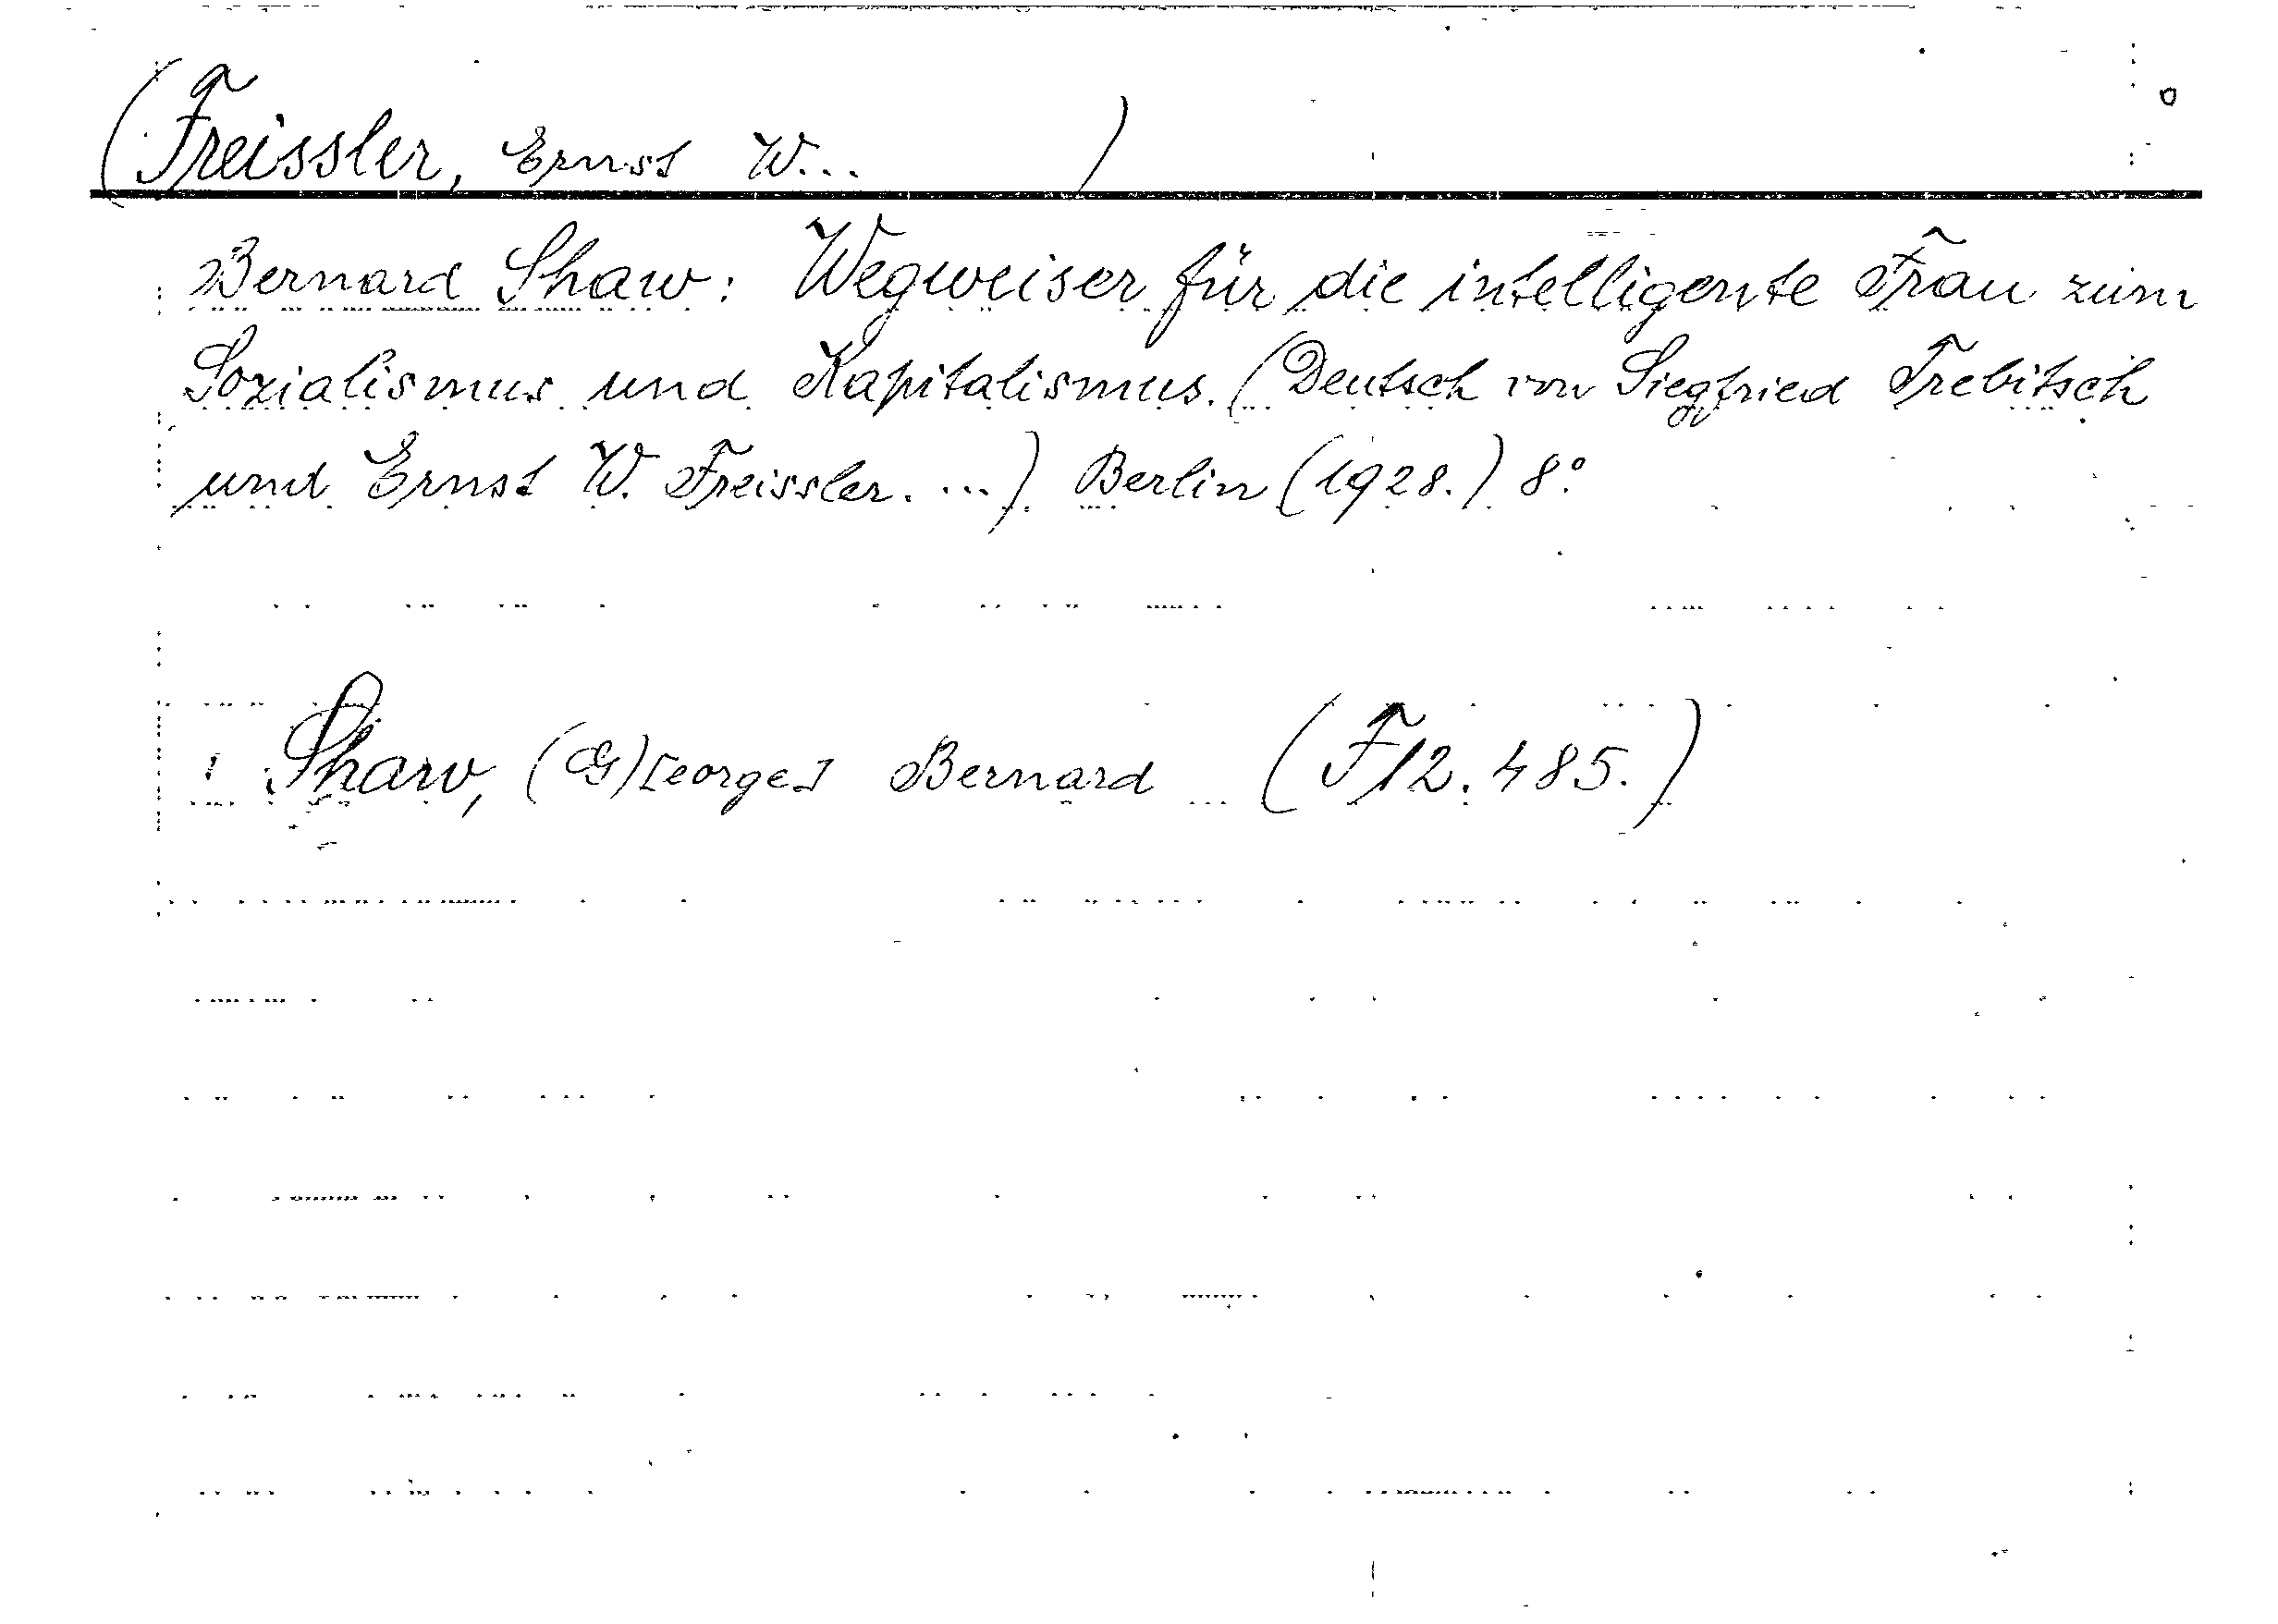 (Freissler, Ernst W... )
Bernard Shaw: Wegweiser für die intelligente Frau zum
Sozialismus und Kapitalismus. (Deutsch von Siegfried Trebitsch
und Ernst W. Freissler. ...) Berlin (1928.) 8°.
Shaw, (G)[eorge] Bernard (F12.485.)